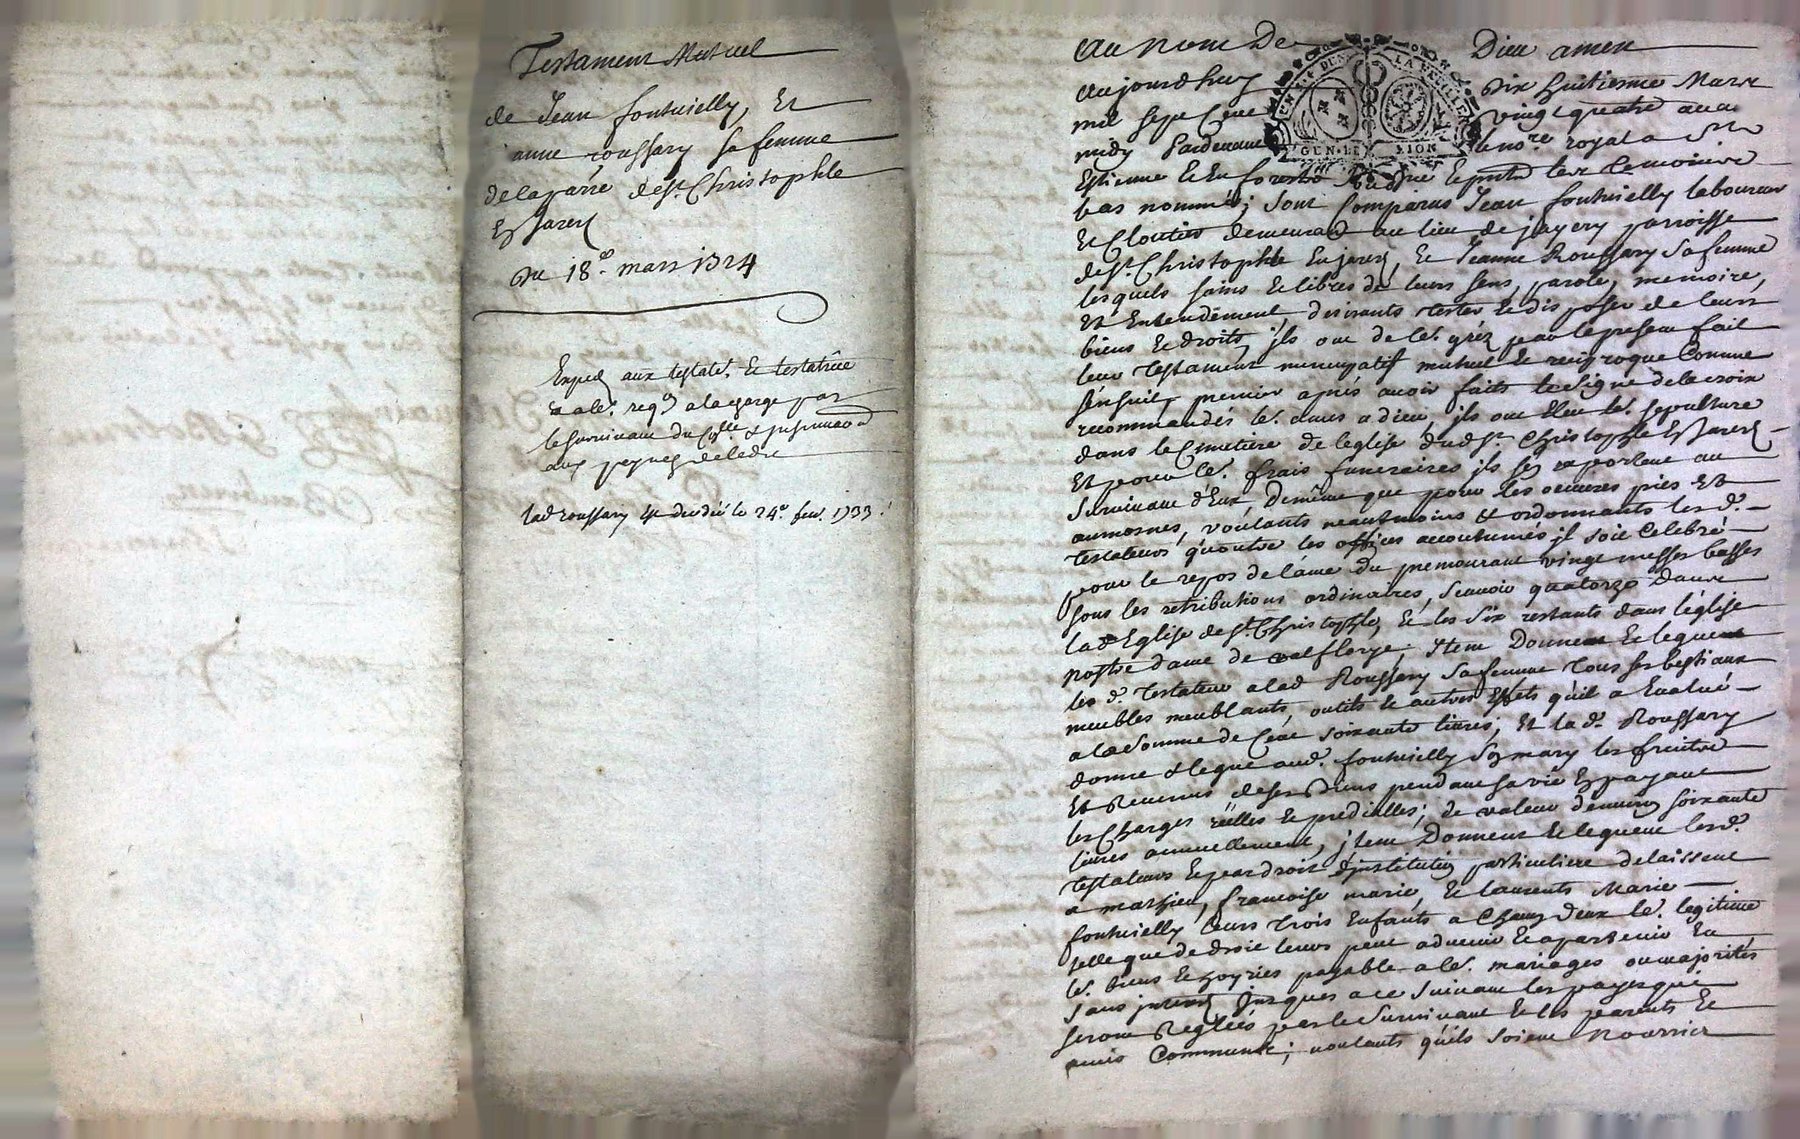 Testament Mutuel
de Jean fontvielly, Et
anne roussary sa femme
de la parre de st. Christophle
En Jarest
Du 18e. mars 1724
Exped aux testatrs. Et testatrice
a la charge par
le survivant du
aux peynes de
lad roussary est decedée le 24e. fevr. 1733.
Au nom De Dieu amen
Aujourdhuy Dix huitieme Mars
mil sept Cent vingt quatre avant
midy Pardevant le nore. royal a St
Estienne Et En forests Soubzne. Et presents les temoins
bas nommés; sont Comparus Jean fontvielly laboureur
Et Cloutier demeurant au lieu de jayery parroisse
de st. Christophle En jarest, Et Jeanne Roussary sa femme
lesquels sains Et libres de leurs sens, parole, memoire,
Et Entendement, desirants tester Et disposer de leurs
biens Et droits, ils ont de lrs. gréz par le present fait
leur Testament nuncupatif mutuel Et reciproque Comme
s'ensuit, premier aprés avoir faits le signe de la croix
recommandés lrs. ames a dieu, ils ont Eleu lrs. sepulture
dans le Cimetiere de l'eglise dud st. Christophle En Jarest
Et pour lrs. frais funeraires ils s'en raportent au
survivant d'Eux, de même que pour les oeuvres pies Et
aumosnes, voulants neantmoins Et ordonnants les d.
Testateurs qu'outre les offices accoutumés il soit Celebré
pour le repos de l'ame du premourant vingt messes basses
sous les retributions ordinaires, scavoir quatorze dans
lad Eglise de st. Christophle, Et les six restants dans l'église
nostre dame de valfleury, Item Donnent Et leguent
les d. Testateur a lad Roussary sa femme tous ses bestiaux
meubles meublants, outils Et autres Effets qu'il a Evalué
a la somme de Cent soixante livres; Et la d. Roussary
donne Et legue aud. fontvielly son mary les fruits
Et Revenus de ses Biens pendant sa vie En payant
les Charges réelles Et predialles; de valeur d'environ soixante
livres annuellement, jtem Donnent Et leguent lesd.
Testateurs Et par droit d'institution particuliere delaissent
a mathieu, francoise marie, Et laurents Marie
fontvielly leurs trois Enfants a Chacun d'eux lr. legitime
telle que de droit leurs peut advenir Et apartenir En
lrs. biens Et hoyries payable a lrs. mariages ou majorités
sans interest jusques a ce suivant les payes qui
seront Reglées par le survivant Et les parents Et
amis Communs; voulants qu'ils soient Nourris
GEN. LE DE LION